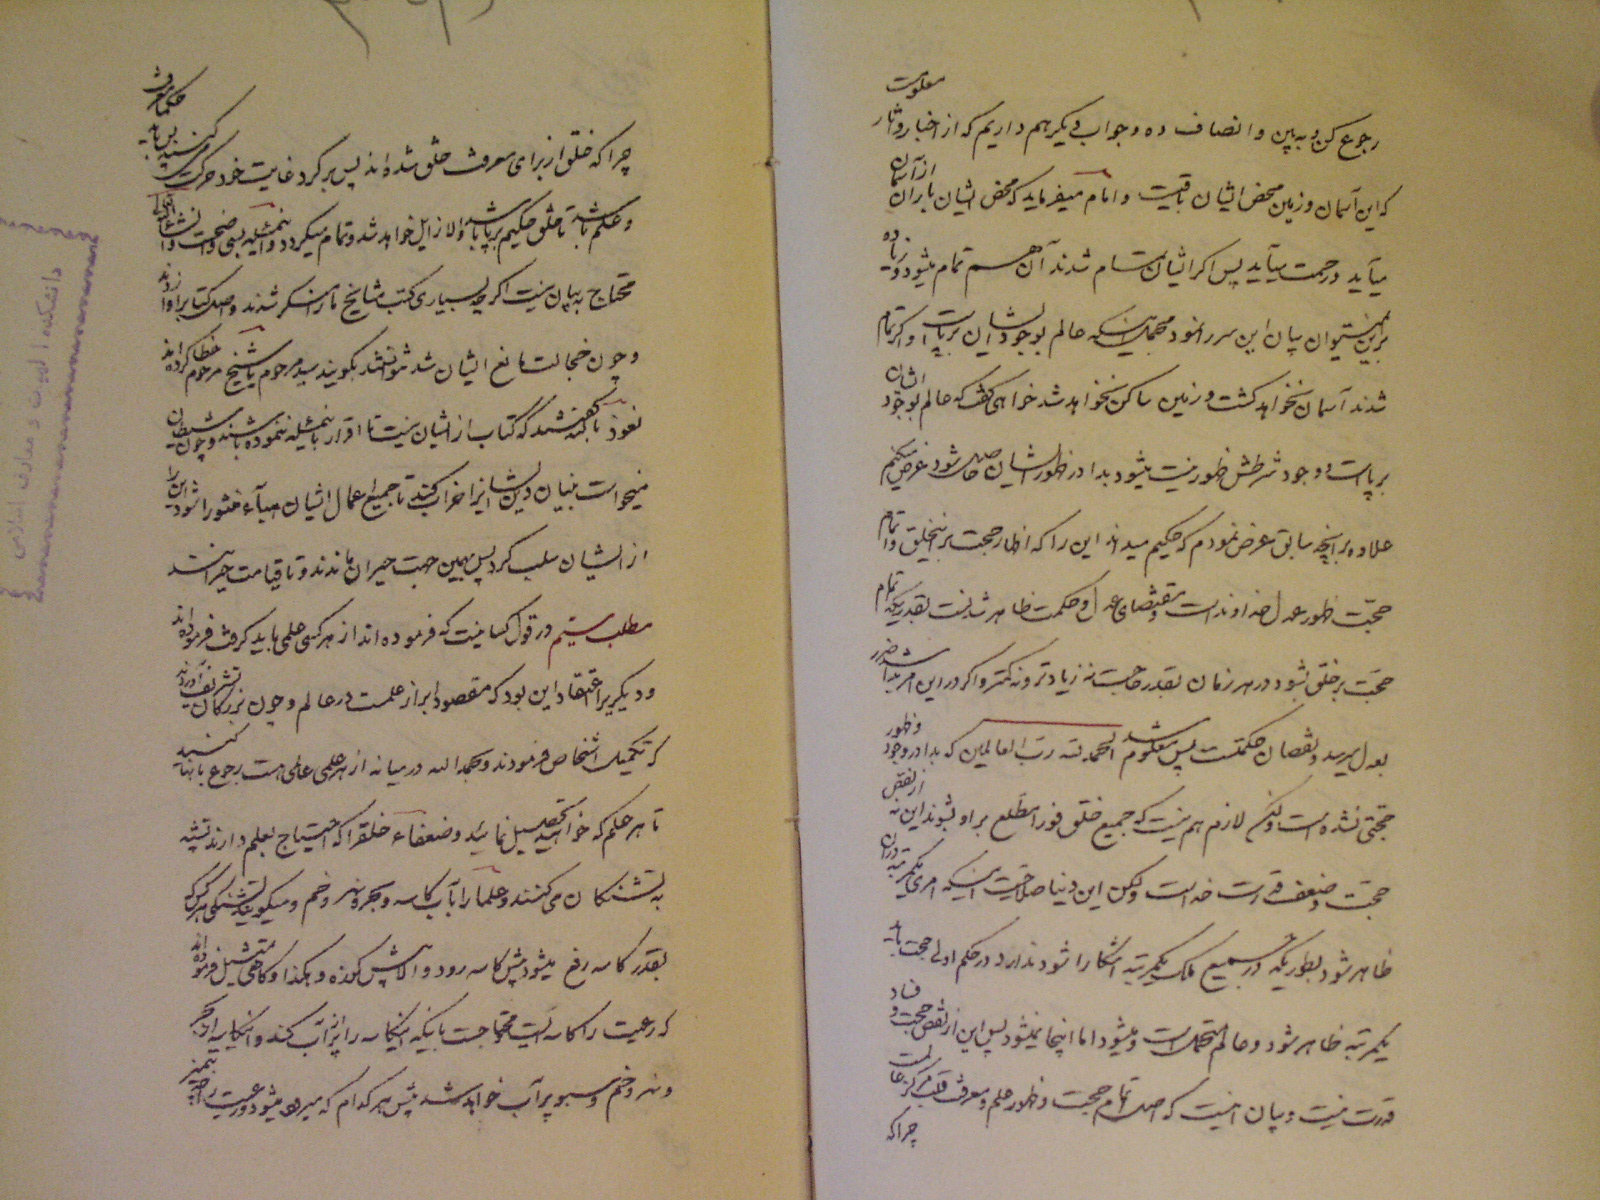 رجوع کن و به بین و انصاف ده و جواب دیگر هم داریم که از اخبار و آثار معلومست
که این آسمان و زمین محض ایشان باقیست و امام میفرماید که محض ایشان باران از آسمان
میآید و رحمت میآید پس اگر ایشان تمام شدند آن هم تمام میشود و زیاده
بر این نمیتوان بیان این سر را نمود مجملا اینکه عالم بوجود ایشان برپاست و اگر تمام
شدند آسمان نخواهد گشت و زمین ساکن نخواهد شد خواهی گفت که عالم بوجود ایشان
برپاست و وجود شرطش ظهور نیست میشود بدا در ظهور ایشان حاصل شود عرض میکنیم
علاوه بر آنچه سابق عرض نمودم که حکیم میداند این را که اظهار حجت بر اینخلق و اتمام
حجت ظهور عدل خداوند است و مقتضای عدل و حکمت ظاهر شدنست بقدریکه اتمام
حجت بر خلق شود در هر زمان بقدر حاجت نه زیادتر و نه کمتر و اگر در این امر بدا شد ضرر
بعدل میرسد و نقصان حکمتست پس معلوم شد الحمد لله رب العالمین که بدا در وجود و ظهور
حجتی نشده است ولکن لازم هم نیست که جمیع خلق فورا مطلع بر او شوند این نه از نقص
حجت و ضعف قدرت خداست ولکن این دنیا صلاحیت اینکه امری یکمرتبه در آن
ظاهر شود بطوریکه در جمیع ملک یکمرتبه آشکارا شود ندارد در حکم اولی حجت باید
یکمرتبه ظاهر شود و عالم متحمل است و میشود اما اینجا نمیشود پس این از نقص حجت و فساد
قدرت نیست و بیان اینست که اصل اتمام حجت و ظهور علم و معرفت قلب مرکز عالمست
چرا که
چرا که خلق از برای معرفت خلق شده اند پس بر گرد غایت خود حرکت
و علم باشد تا خلق حکیم برپا باشد والا زایل خواهد شد و تمام میگردد و اینمسئله بسی واضحست
محتاج به بیان نیست اگر چه بسیاری کتب مشایخ ما را منکر شدند
و چون خجالت مانع ایشان شد نتوانستند بگویند سید مرحوم یا شیخ مرحوم خطا کرده اند
نعوذ بالله گفتند که کتاب از ایشان نیست تا اقرار باینمسئله ننموده باشند و چون شیطان
میخواست بنیان دین ایشانرا خراب کند تا جمیع اعمال ایشان هباء منثورا شود این را
از ایشان سلب کرد پس بهمین جهت حیران ماندند و تا قیامت حیرانند
مطلب سیم در قول کسانیست که فرموده اند از هر کسی علمی باید گرفت فرموده اند
و دیگریرا اعتقاد این بود که مقصود ابراز علمست در عالم و چون بزرگان تشریف آوردند
که تکمیل اشخاص فرمودند و بحمد الله در میانه از هر علمی عالمی هست رجوع بآنها کنید
تا هر علم که خواهید تحصیل نمائید و ضعفاء خلقرا که احتیاج بعلم دارند تشبیه
به تشنگان می کنند و علما را بآب کاسه و بحره و نهر و خم و میگویند تشنگی هر کس
بقدر کاسه رفع میشود پیش کاسه رود و الا پیش کوزه و هکذا و گاهی تمثیل فرموده اند
که رعیت را کاسه ایست محتاجست باینکه اینکاسه را پر از آب کند و اینکاسه از بحر
و نهر و خم و سبو پر آب خواهد شد پیش هر کدام که میرود میشود و رعیت را